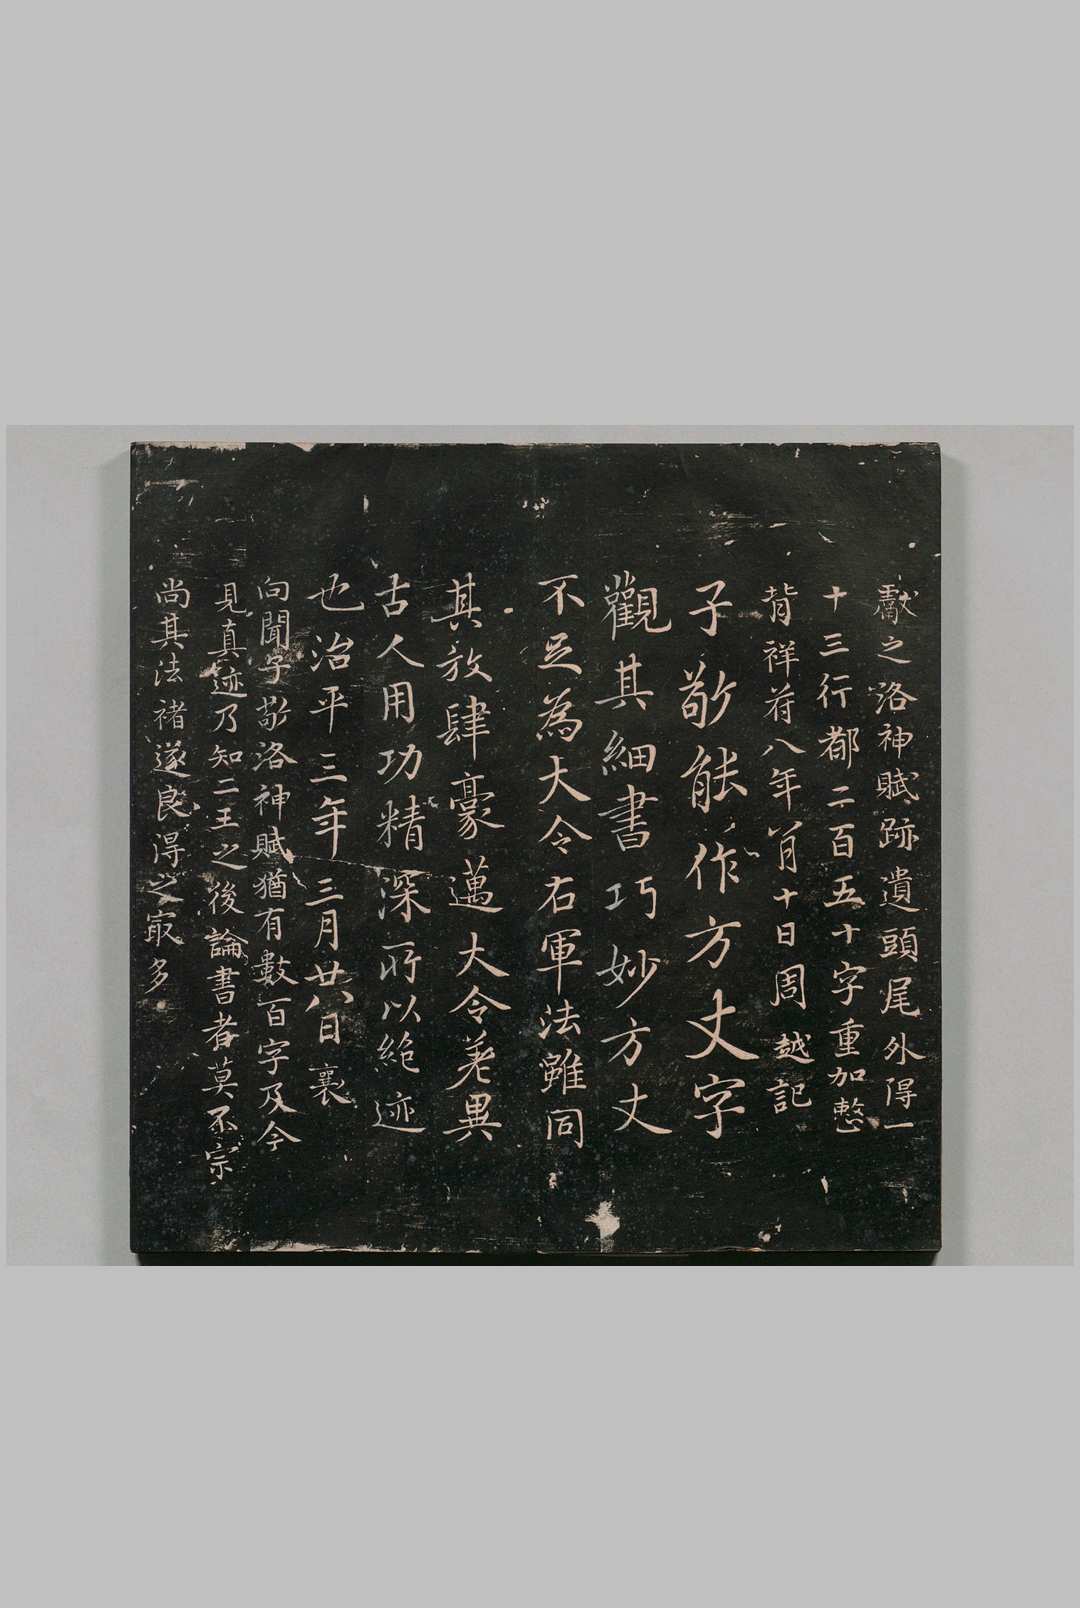 獻之洛神賦跡遺頭尾外得一
十三行都二百五十字重加整
背祥符八年八月十日周越記
子敬能作方丈字
觀其細書巧妙方丈
不足為大令右軍法雖同
其放肆豪邁大令差異
古人用功精深所以絕迹
也治平三年三月廿八日襄
向聞子敬洛神賦猶有數百字及今
見真迹乃知二王之後論書者莫不宗
尚其法褚遂良得之冣多